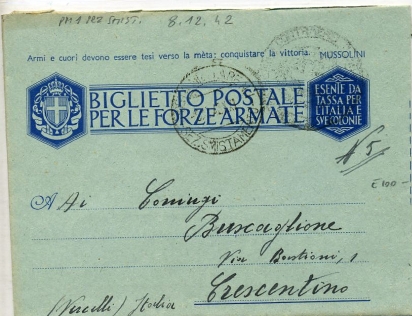 PM 1 8.12.42
Armi e cuori devono essere tesi verso la mèta: conquistare la vittoria. MUSSOLINI
BIGLIETTO POSTALE
PER LE FORZE ARMATE
ESENTE DA
TASSA PER
L'ITALIA E
SVE COLONIE
N 5
£ 100
A Ai Coniugi
Buscaglione
Via Bastioni, 1
Crescentino
(Vercelli) Italia